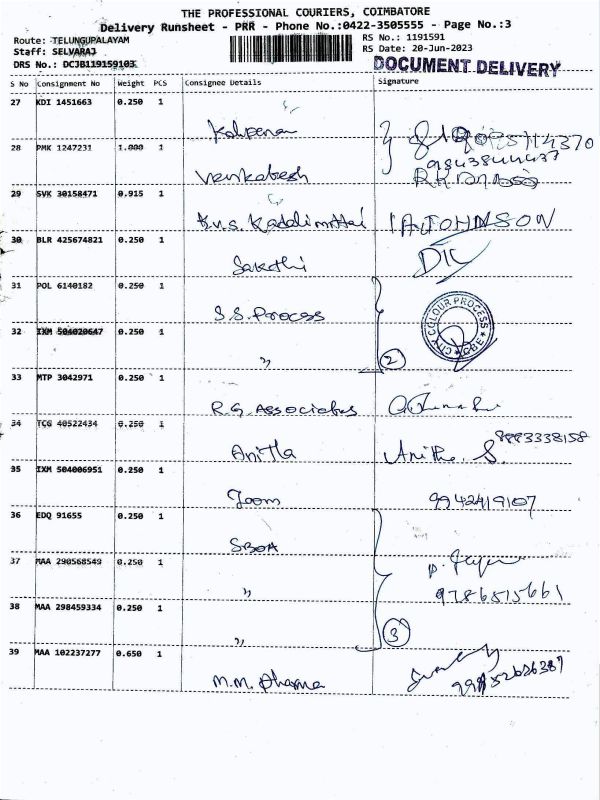 THE PROFESSIONAL COURIERS, COIMBATORE
Delivery Runsheet - PRR - Phone No.:0422-3505555 - Page No.:3
Route: TELUNGUPALAYAM RS No.: 1191591
Staff: SELVARAJ RS Date: 20-Jun-2023
DRS No.: DCJB119159103 DOCUMENT DELIVERY
S No Consignment No Weight PCS Consignee Details Signature
27 KDI 1451663 0.250 1
Kalpana
28 PMK 1247231 1.000 1
9843844437
Venkatesh
29 SVK 30158471 0.915 1
K.V.S. Kadalimittai JATOHNSON
30 BLR 425674821 0.250 1
Sakthi
31 POL 6140182 0.250 1
S.S. Process CITY COLOUR PROCESS CBE
32 IXM 504020647 0.250 1
" 2
33 MTP 3042971 0.250 1
R.G. Associates
34 TCG 40522434 0.250 1
Anitha Anitha. S. 8883338158
35 IXM 504006951 0.250 1
Joom 9942419107
36 EDQ 91655 0.250 1
SBOA
37 MAA 290568549 0.250 1
" 9786515661
38 MAA 298459334 0.250 1
" 3
39 MAA 102237277 0.650 1
M.M. Dharna